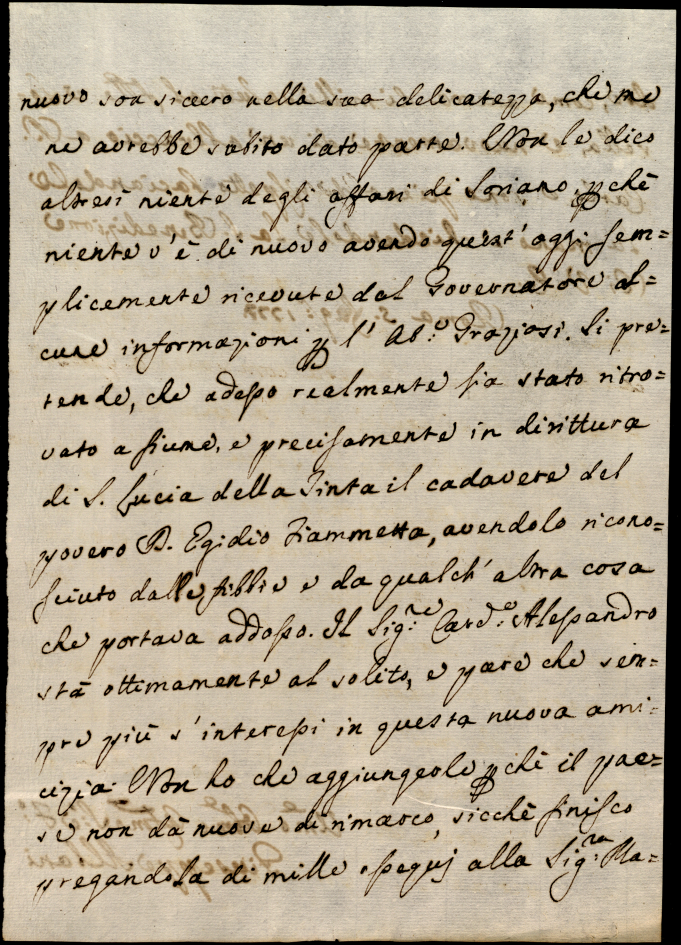 nuovo son sicuro nella sua delicatezza, che me
ne avrebbe subito dato parte. Non le dico
altresì niente degli affari di Soriano, pchè
niente v'è di nuovo avendo quest'oggi sem=
plicemente ricevute dal Governatore al=
cune informazioni p l'Ab:e Graziosi. Si pre=
tende, che adesso realmente sia stato ritro=
vato a fiume, e precisamente in dirittura
di S. Lucia della Tinta il cadavere del
povero D. Egidio Fiammetta, avendolo ricono=
sciuto dalle fibbie e da qualch'altra cosa
che portava addosso. Il Sig:re Card:e Alessandro
stà ottimamente al solito, e pare che sem=
pre più s'interessi in questa nuova ami=
cizia. Non ho che aggiungerle pchè il pae=
se non dà nuove di rimarco, sicchè finisco
pregandola di mille ossequj alla Sig:ra Ma=